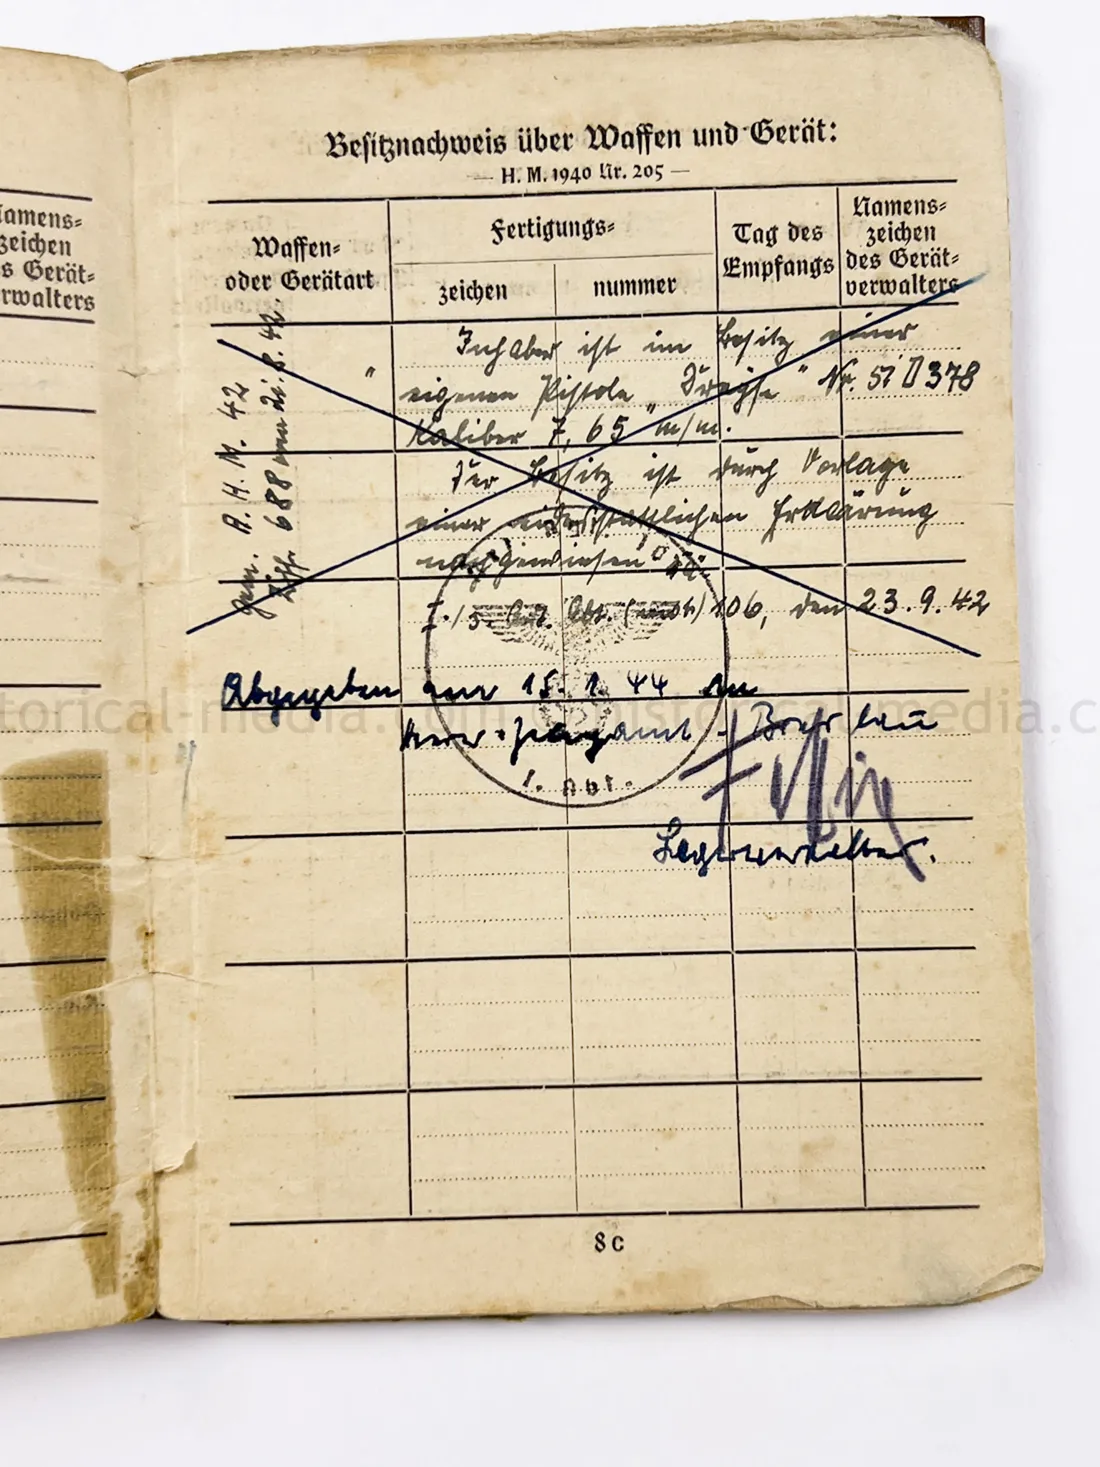 Namens-
zeichen
s Gerät-
rwalters
Besitznachweis über Waffen und Gerät:
— H. M. 1940 Nr. 205 —
Waffen-
oder Gerätart
Fertigungs-
zeichen
nummer
Tag des
Empfangs
Namens-
zeichen
des Gerät-
verwalters
Gem. A. H. M. 42
Ziff. 688 vom 21. 8. 42
Inhaber ist im Besitz einer
eigenen Pistole „Dreyse" Nr. 378
Kaliber 7,65 m/m.
Der Besitz ist durch Vorlage
einer eidesstattlichen Erklärung
nachgewiesen
Abt. (mot) 106, den 23.9.42
Abgegeben am 15. 1. 44 an
Breslau
I. Abt.
Lagerverwalter.
8 c
historical-media.com
historical-media.com